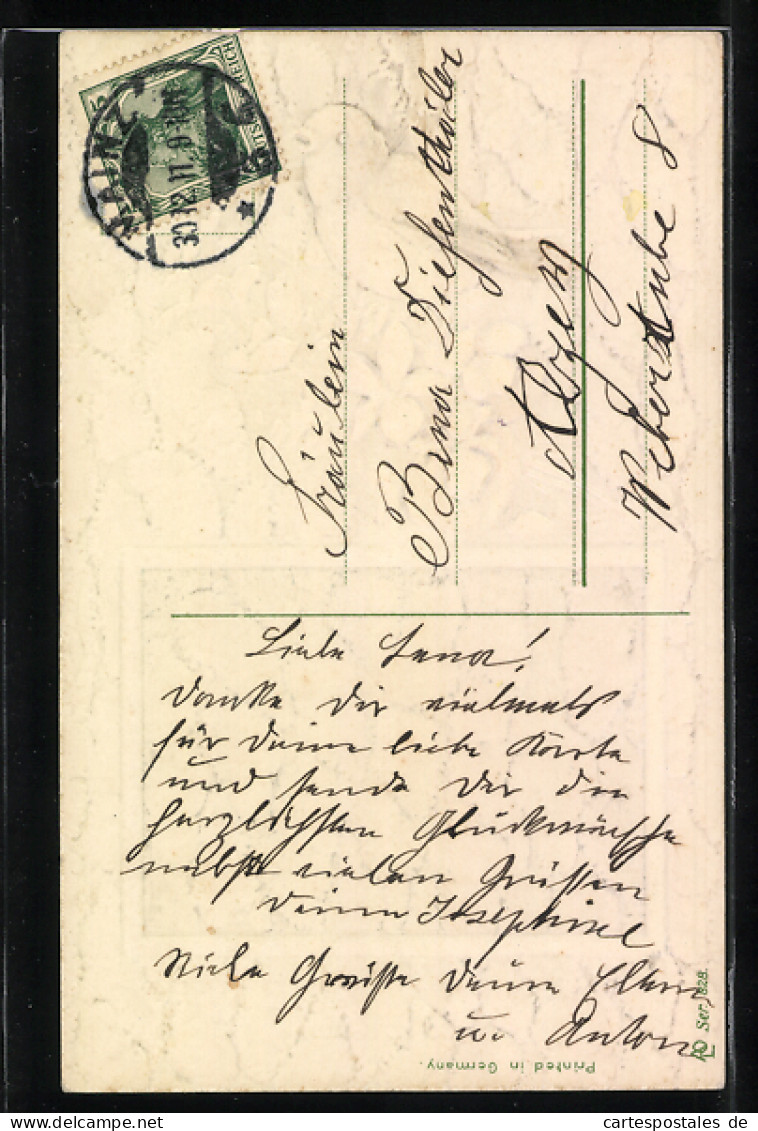 MAINZ
30.12.11.9-10N
DEUTSCHES REICH
Fräulein
Bina Diefenthäler
Alzey
Weberstube 8
Liebe Lena!
Danke Dir vielmals
für Deine liebe Karte
und sende Dir die
herzlichsten Glückwünsche
nebst vielen Grüssen
Deine Josephine
Viele Grüsse Deine
u. Anton
Ser. 828.
Printed in Germany.
cartespostales de